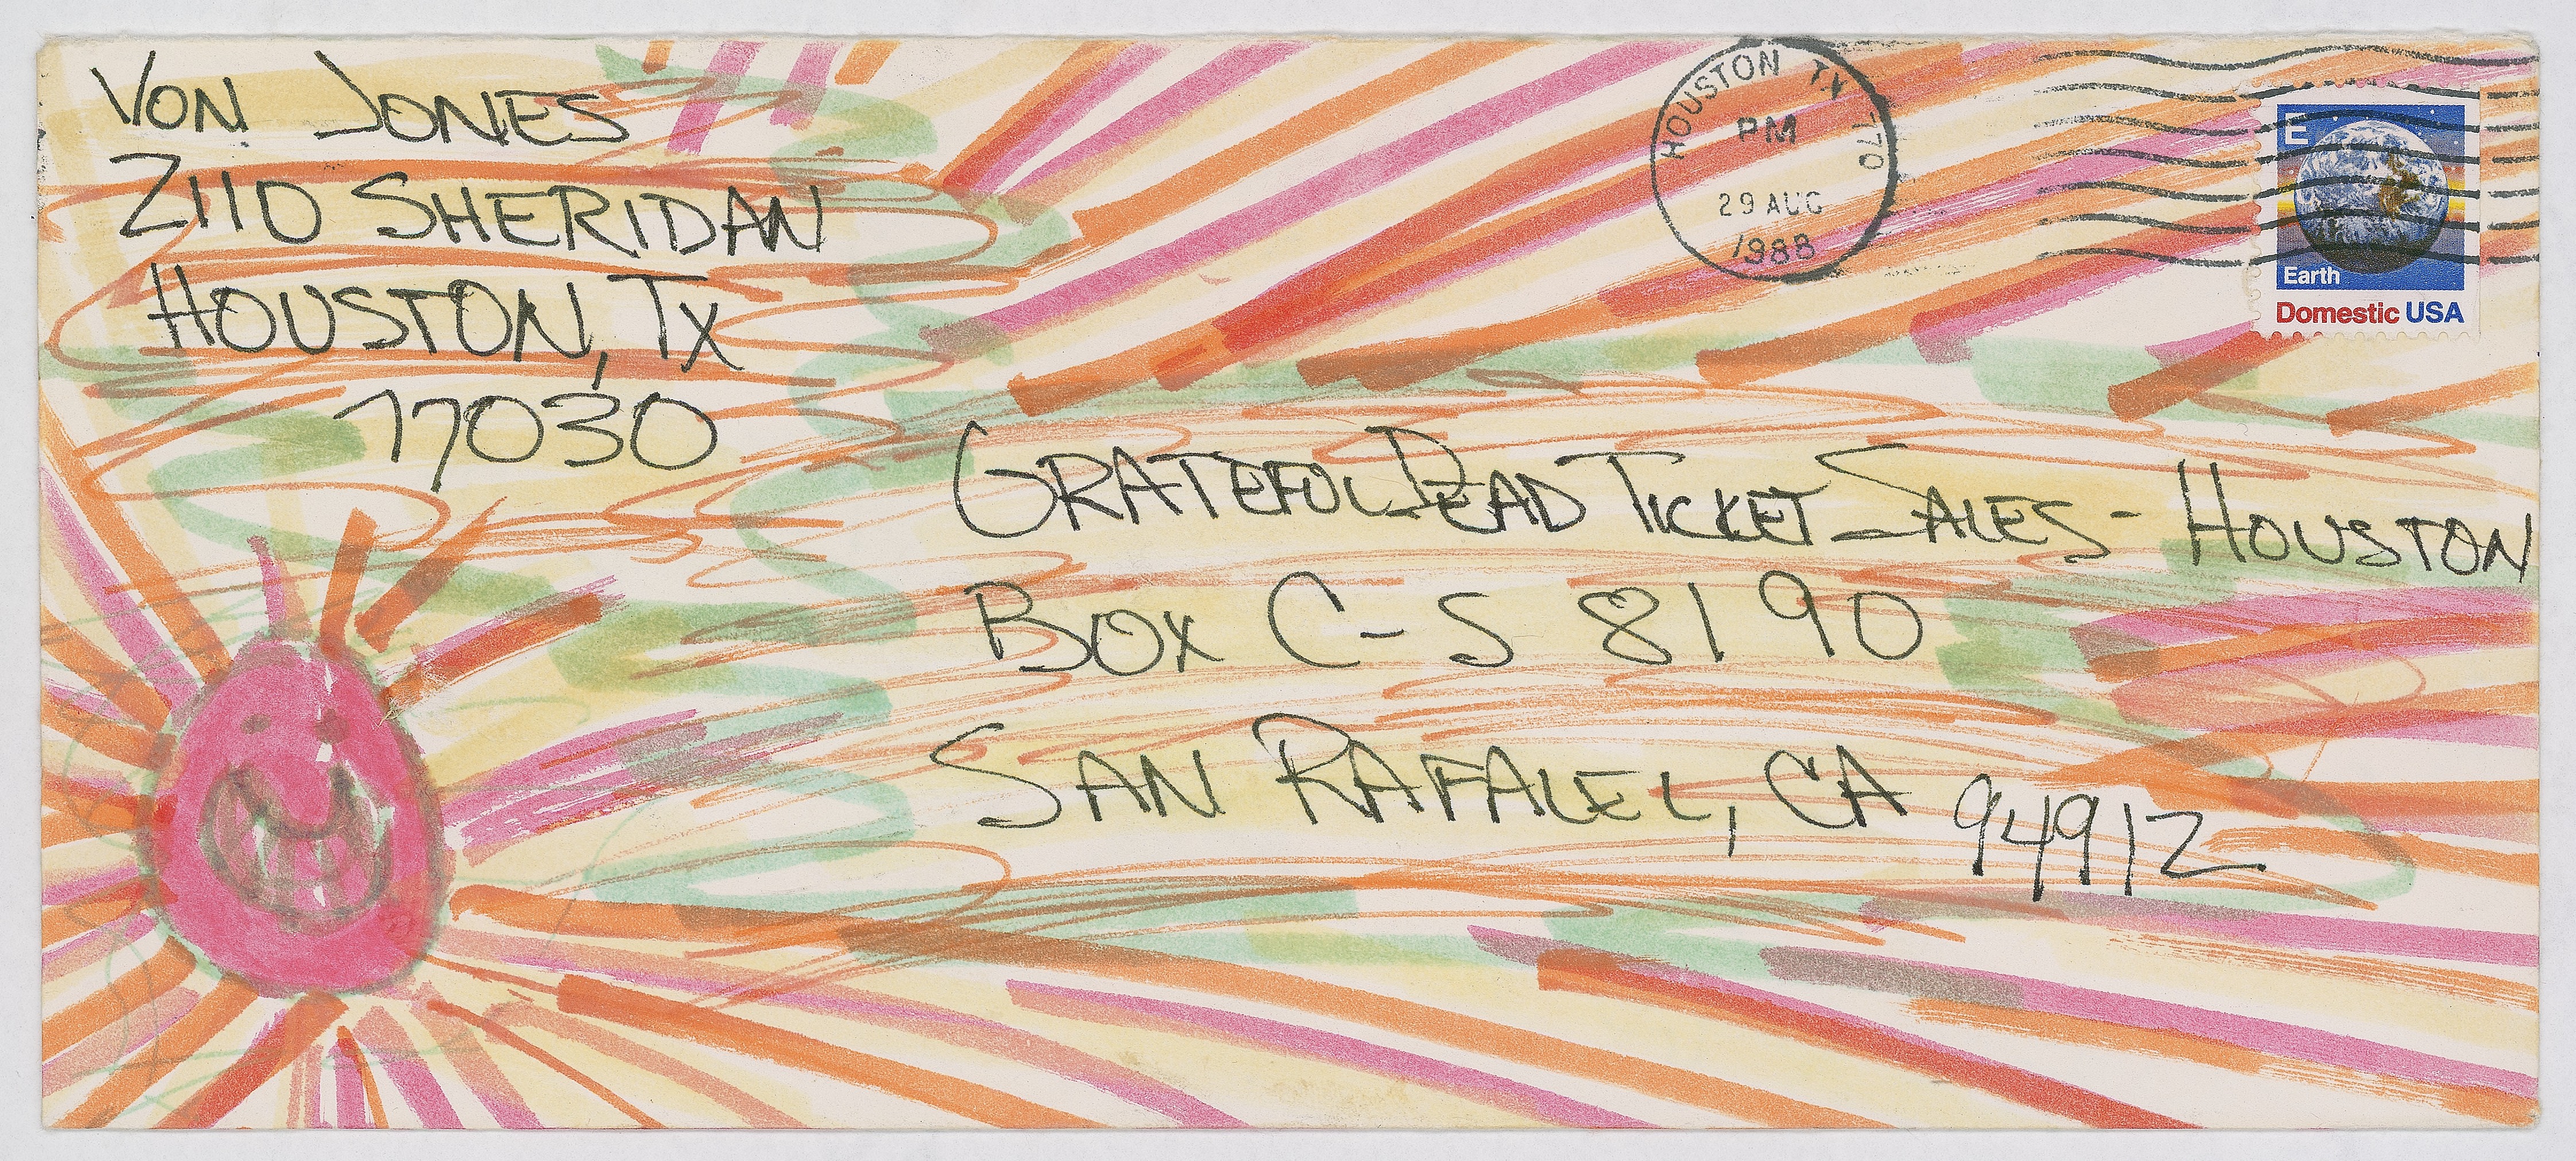 VON JONES
2110 SHERIDAN
HOUSTON, TX
77030
HOUSTON TX 770
PM
29 AUG
1988
E
Earth
Domestic USA
GRATEFUL DEAD TICKET SALES - HOUSTON
BOX C-S 8190
SAN RAFALEL, CA 94912